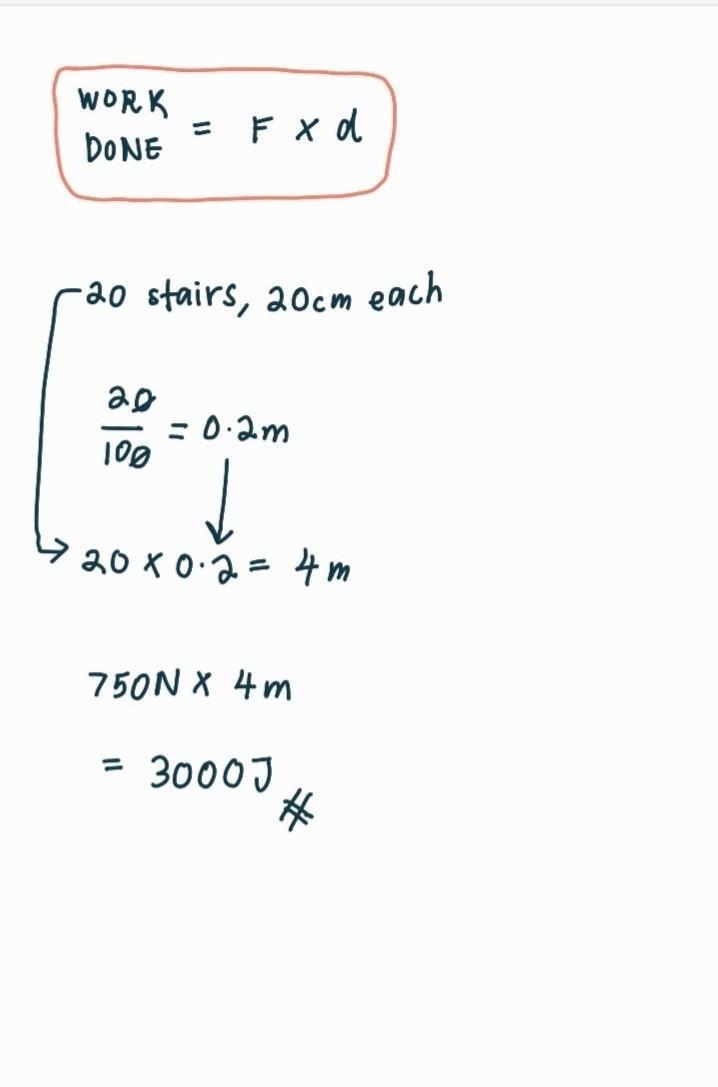 WORK
DONE = F x d
20 stairs, 20cm each
20
100 = 0.2m
20 x 0.2 = 4m
750N x 4m
= 3000J #